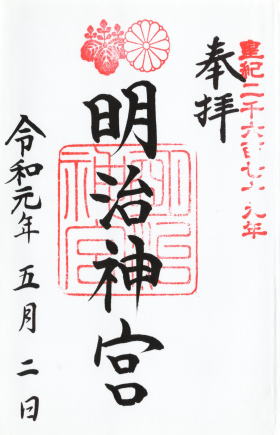 皇紀二千六百七十九年
奉拝
明治神宮
明治神宮
令和元年 五月 二日